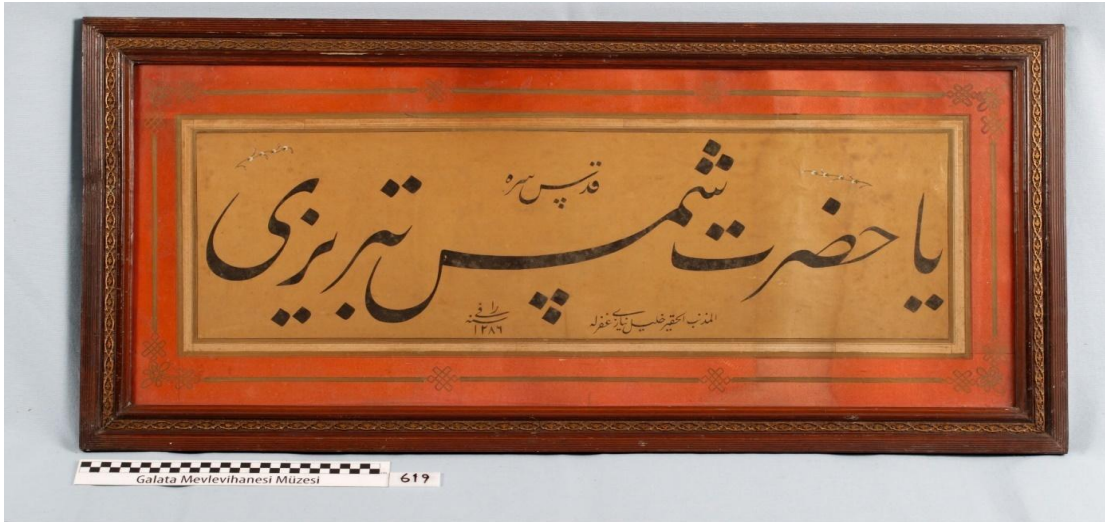 یا حضرت شمس تبریزی
قدس سره
المذنب الحقیر خلیل نیازی غفرله
فی
سنه
١٢٨٦
Galata Mevlevihanesi Müzesi
619